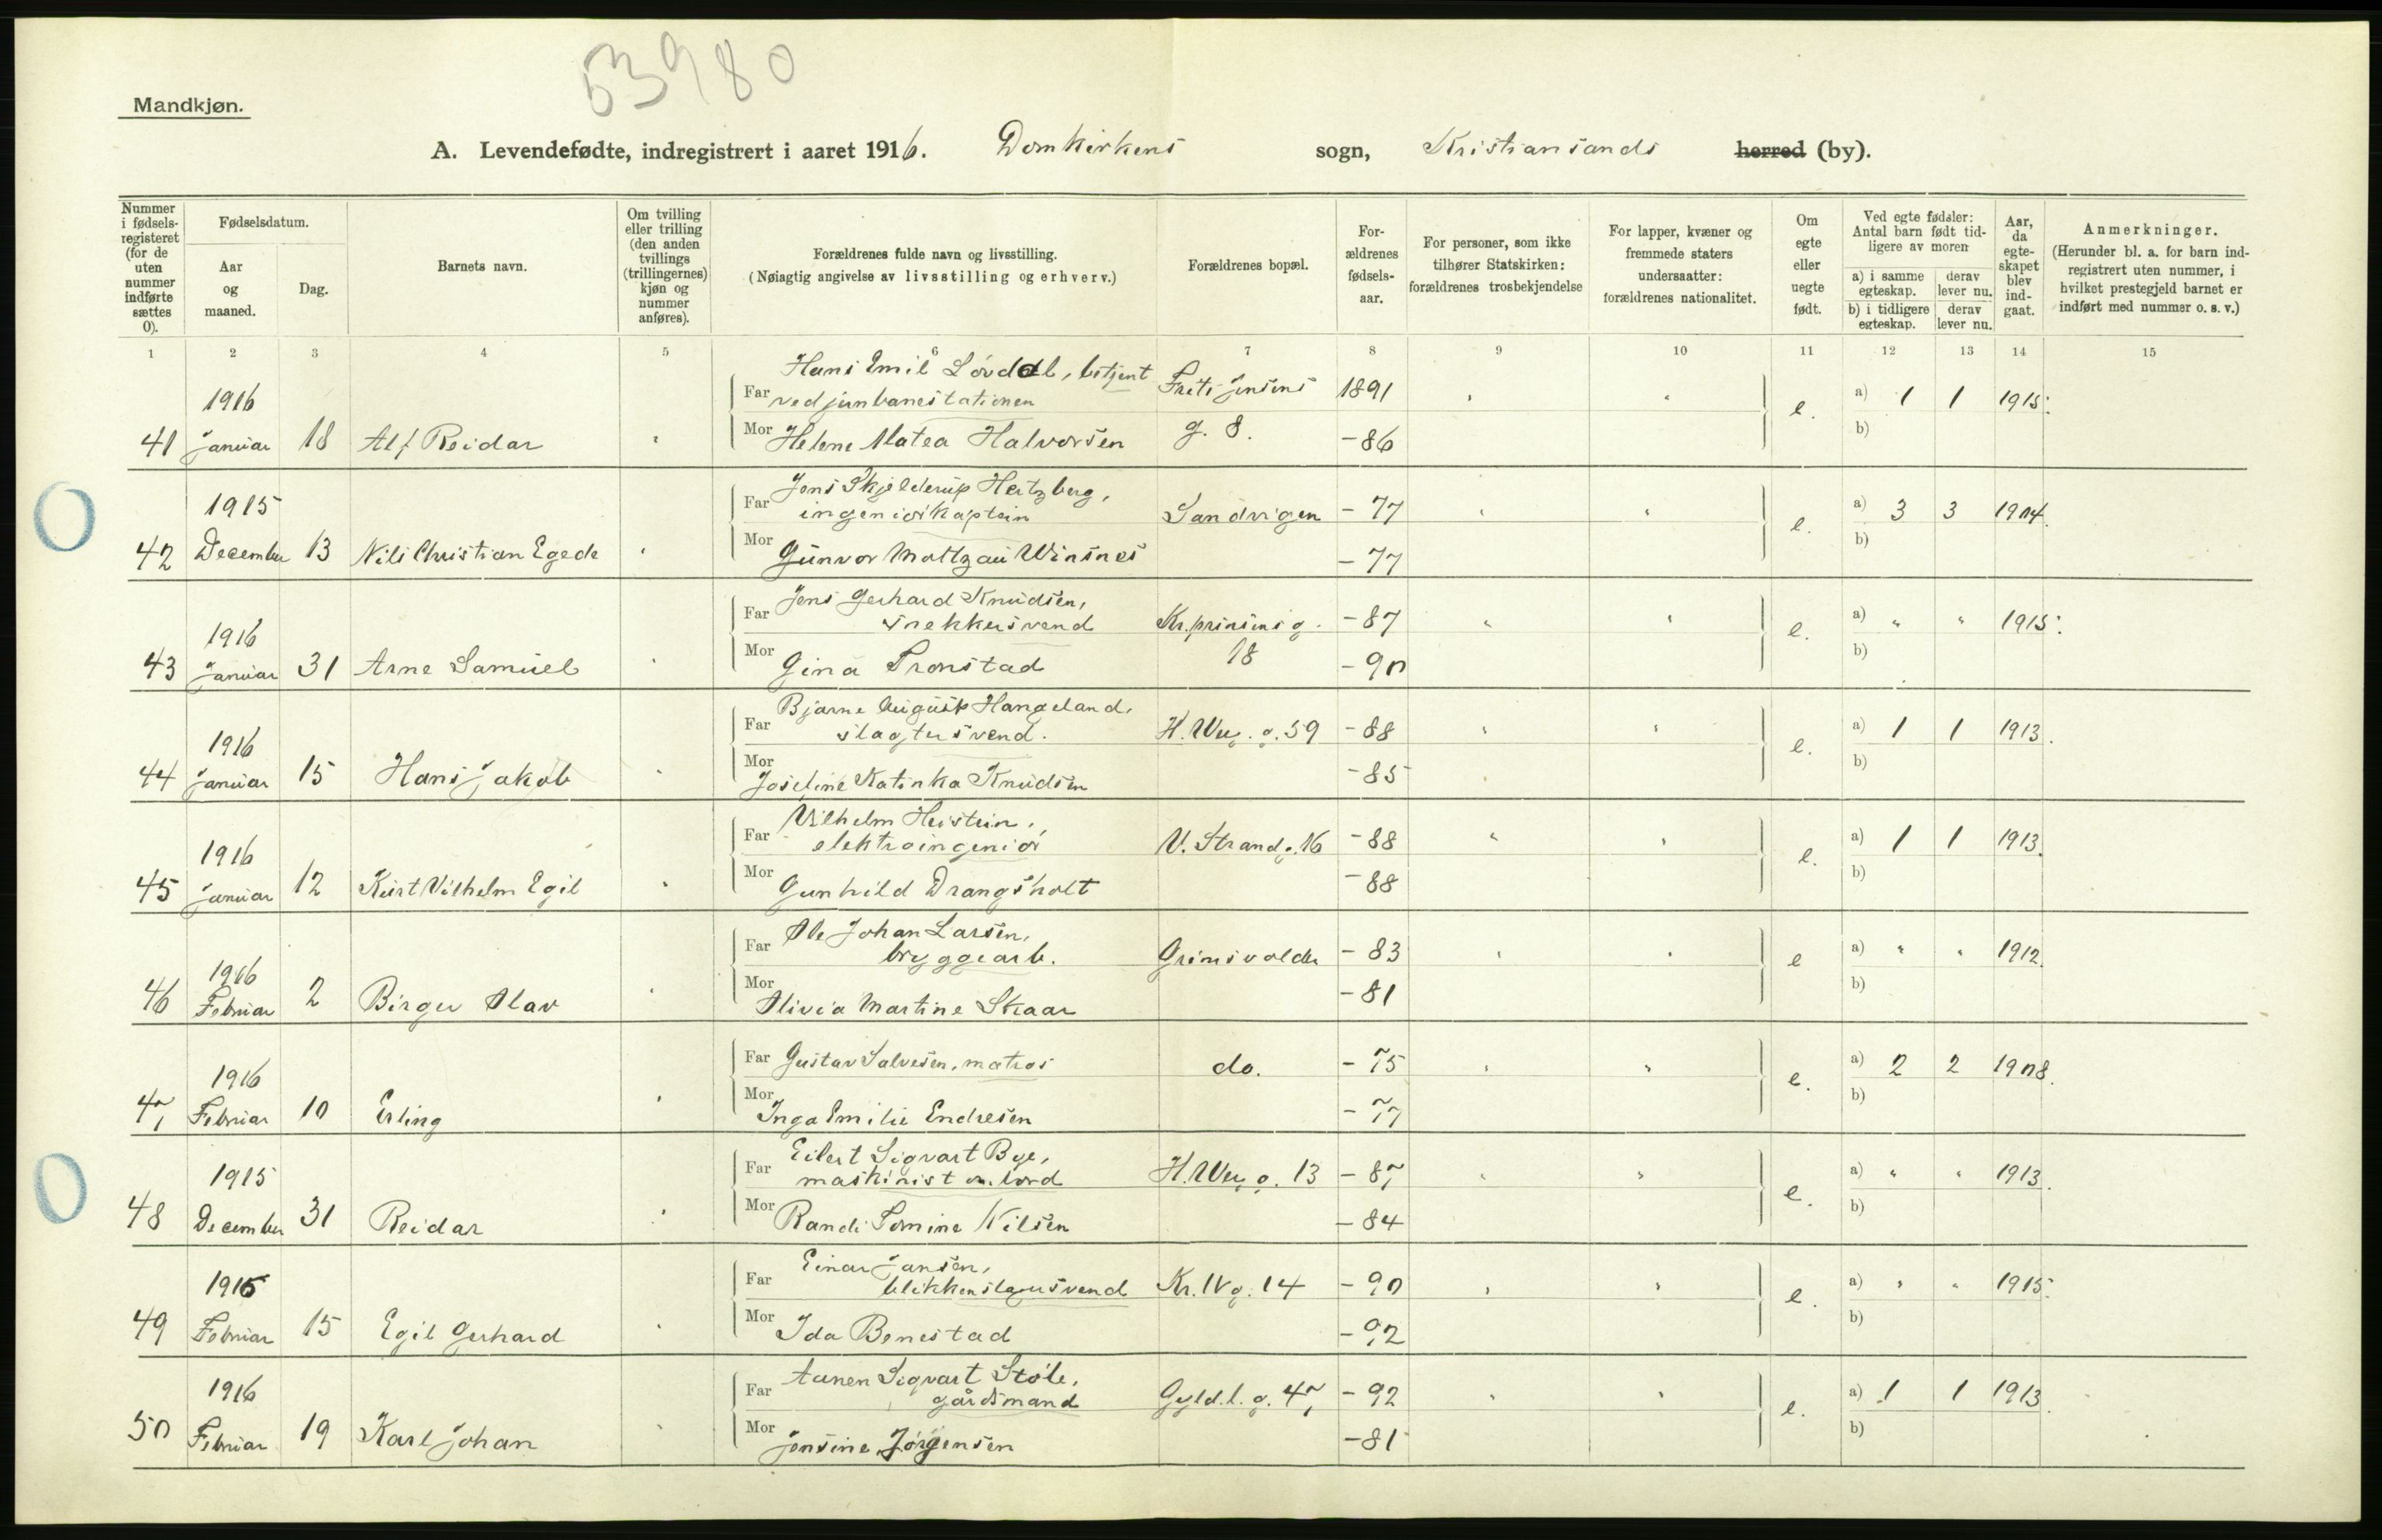 53980
Mandkjøn.
A. Levendefødte, indregistrert i aaret 1916. Domkirkens sogn, Kristiansands herred (by).
Nummer i fødsels-registeret (for de uten nummer indførte sættes 0).
Fødselsdatum.
Aar og maaned.
Dag.
Barnets navn.
Om tvilling eller trilling (den anden tvillings (trillingernes) kjøn og nummer anføres).
Forældrenes fulde navn og livsstilling.
(Nøiagtig angivelse av livsstilling og erhverv.)
Forældrenes bopæl.
For-ældrenes fødsels-aar.
For personer, som ikke tilhører Statskirken: forældrenes trosbekjendelse
For lapper, kvæner og fremmede staters undersaatter: forældrenes nationalitet.
Om egte eller uegte født.
Ved egte fødsler: Antal barn født tid-ligere av moren
a) i samme egteskap. derav lever nu.
b) i tidligere egteskap. derav lever nu.
Aar, da egte-skapet blev ind-gaat.
Anmerkninger.
(Herunder bl. a. for barn ind-registrert uten nummer, i hvilket prestegjeld barnet er indført med nummer o. s. v.)
1 2 3 4 5 6 7 8 9 10 11 12 13 14 15
Hans Emil Løvdal, betjent
1916 Far ved jernbanestationen Frets Jensens 1891 " " e. a) 1 1 1915.
41 Januar 18 Alf Reidar " Mor Helene Matea Halvorsen g. 8. -86 b)
Jens Skjelderup Hertzberg,
1915 Far ingeniørkaptein Sandvigen -77 " " e. a) 3 3 1904.
42 December 13 Nils Christian Egede " Mor Gunvor Moltzau Winsnes -77 b)
Jens Gerhard Knudsen,
1916 Far snekkersvend Kr. prinsens g. -87 " " e. a) " " 1915.
43 Januar 31 Arne Samuel " Mor Gina Tronstad 18 -90 b)
Bjarne August Hangeland,
1916 Far slagtersvend. H. Werg. g. 59 -88 " " e. a) 1 1 1913.
44 Januar 15 Hans Jakob " Mor Joseline Katinka Knudsen -85 b)
Vilhelm Heistein,
1916 Far elektroingeniør V. Strandg. 16 -88 " " e. a) 1 1 1913.
45 Januar 12 Kurt Vilhelm Egil " Mor Gunhild Drangsholt -88 b)
Ole Johan Larsen,
1916 Far bryggearb. Grimsvolden -83 " " e a) " " 1912.
46 Februar 2 Birger Olav " Mor Olivia Martine Skaar -81 b)
1916 Far Gustav Salvesen, matros do. -75 " " e. a) 2 2 1908.
47 Februar 10 Erling " Mor Inga Emilie Endresen -77 b)
Eilert Sigvart Bye,
1915 Far maskinist om bord H. Werg. g. 13 -87 " " e. a) " " 1913.
48 December 31 Reidar " Mor Randi Tomine Nilsen -84 b)
Einar Jansen,
1916 Far blikkenslagersvend Kr. IV g. 14 -90 " " e. a) " " 1915.
49 Februar 15 Egil Gerhard " Mor Ida Benestad -92 b)
Aanen Sigvart Støle,
1916 Far gårdsmand Gyld.l. g. 47 -92 " " e. a) 1 1 1913.
50 Februar 19 Karl Johan " Mor Jensine Jørgensen -81 b)
0
0